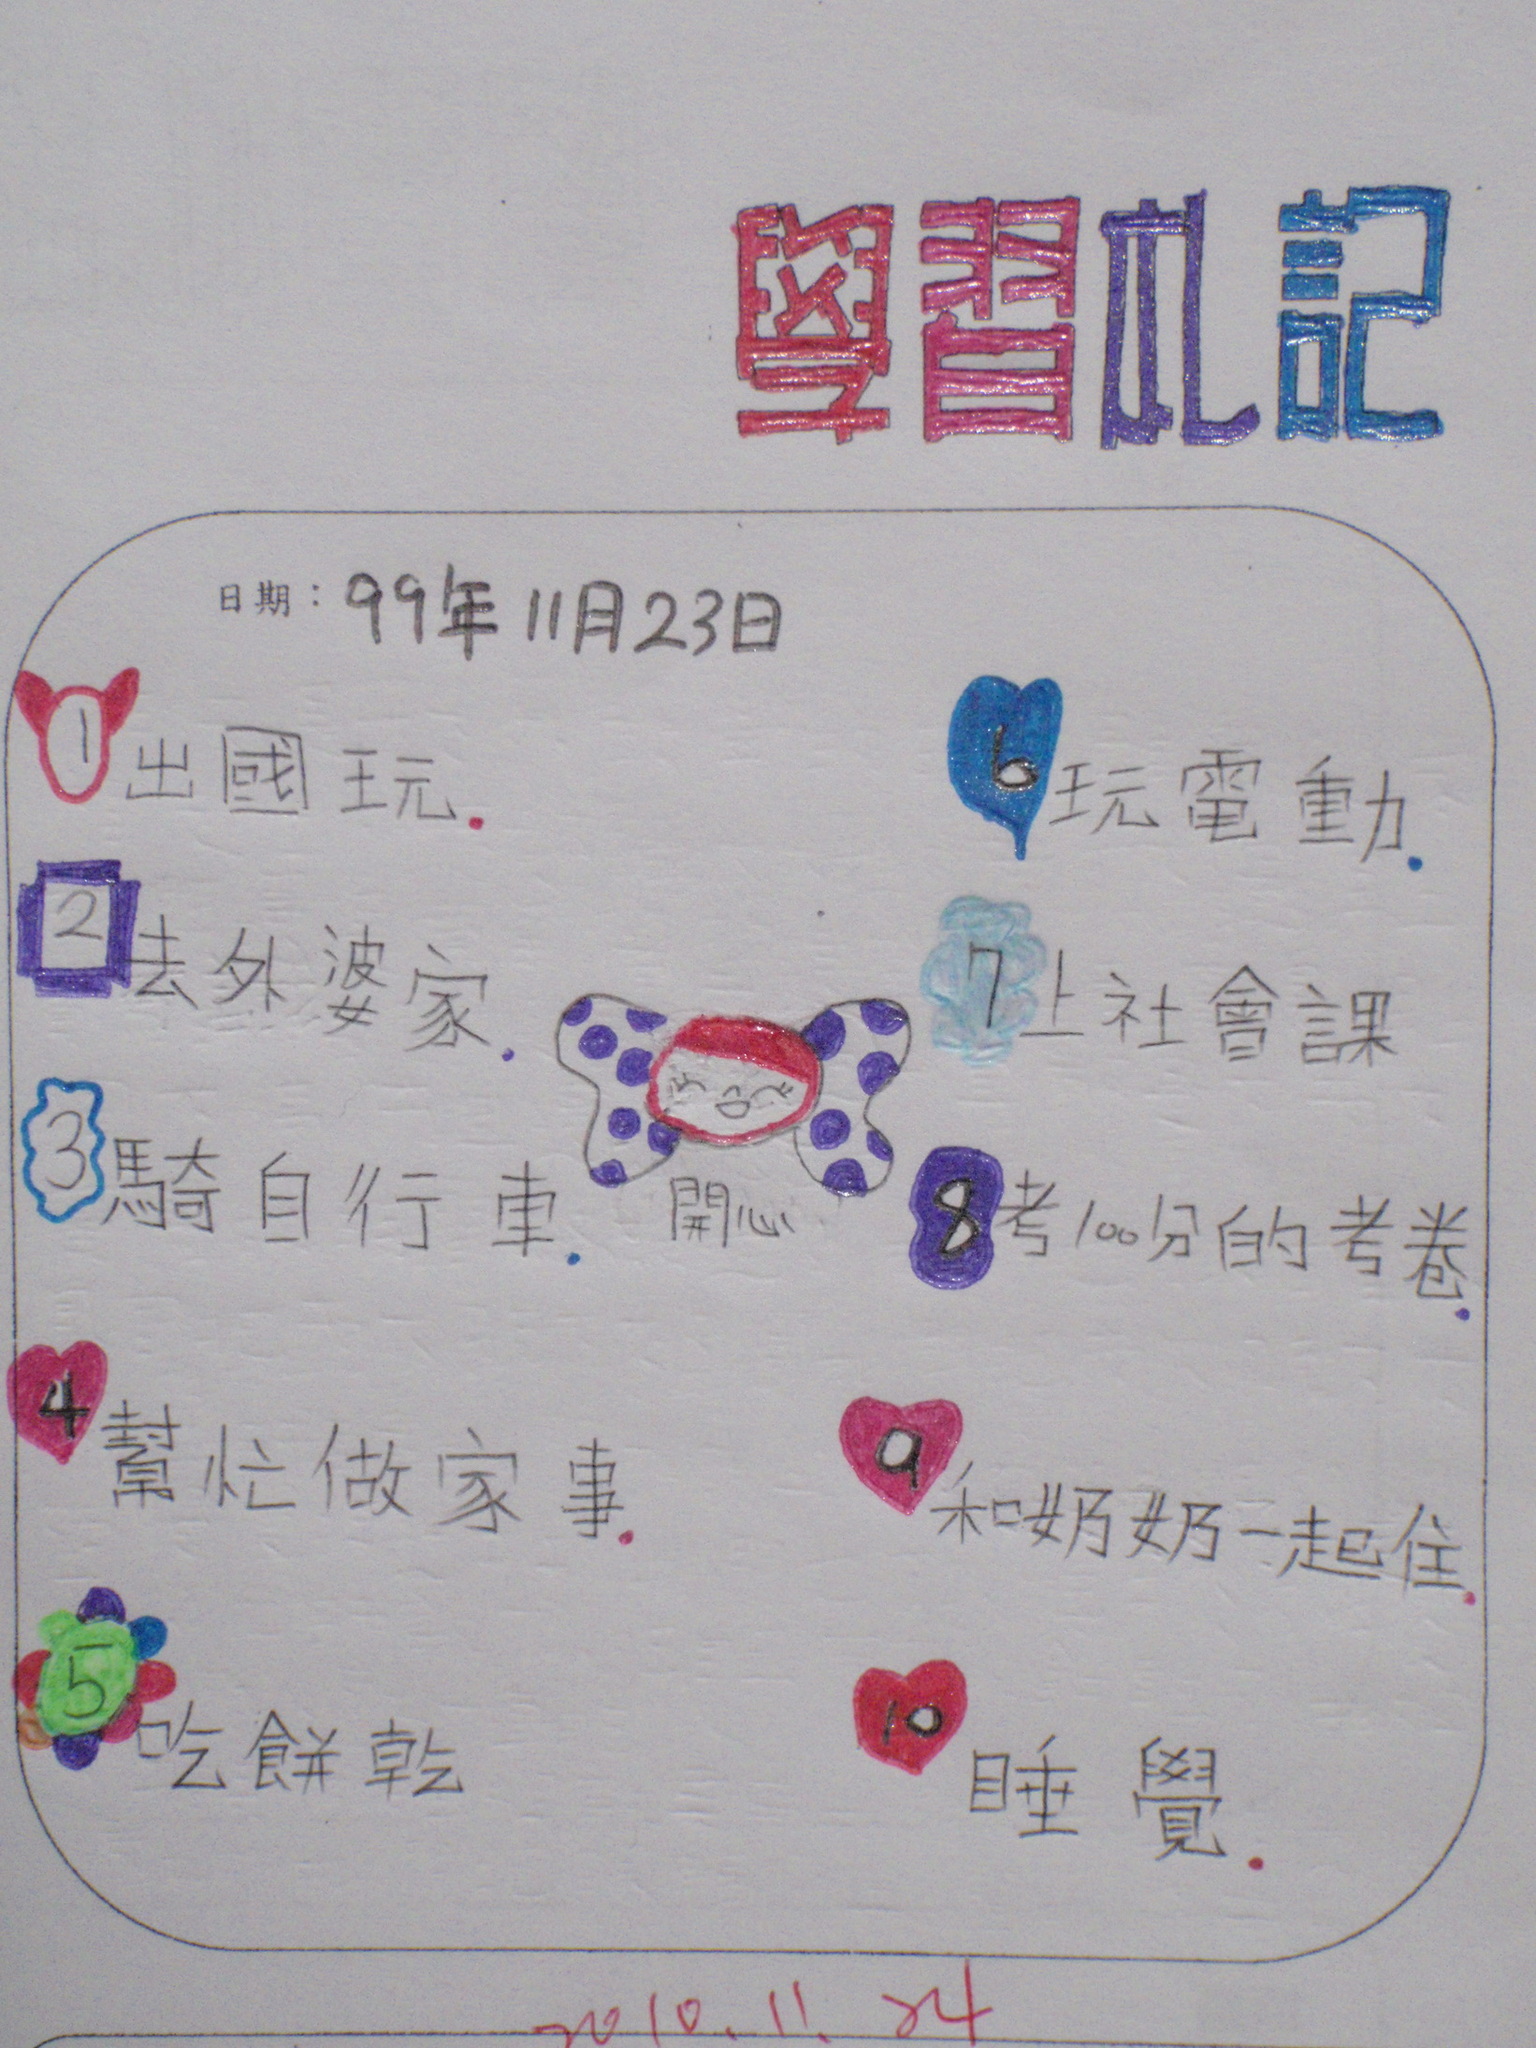 學習札記
日期：99年11月23日
1 出國玩.
2 去外婆家.
3 騎自行車.
4 幫忙做家事.
5 吃餅乾
開心
6 玩電動.
7 上社會課
8 考100分的考卷.
9 和奶奶一起住.
10 睡覺.
2010.11.24